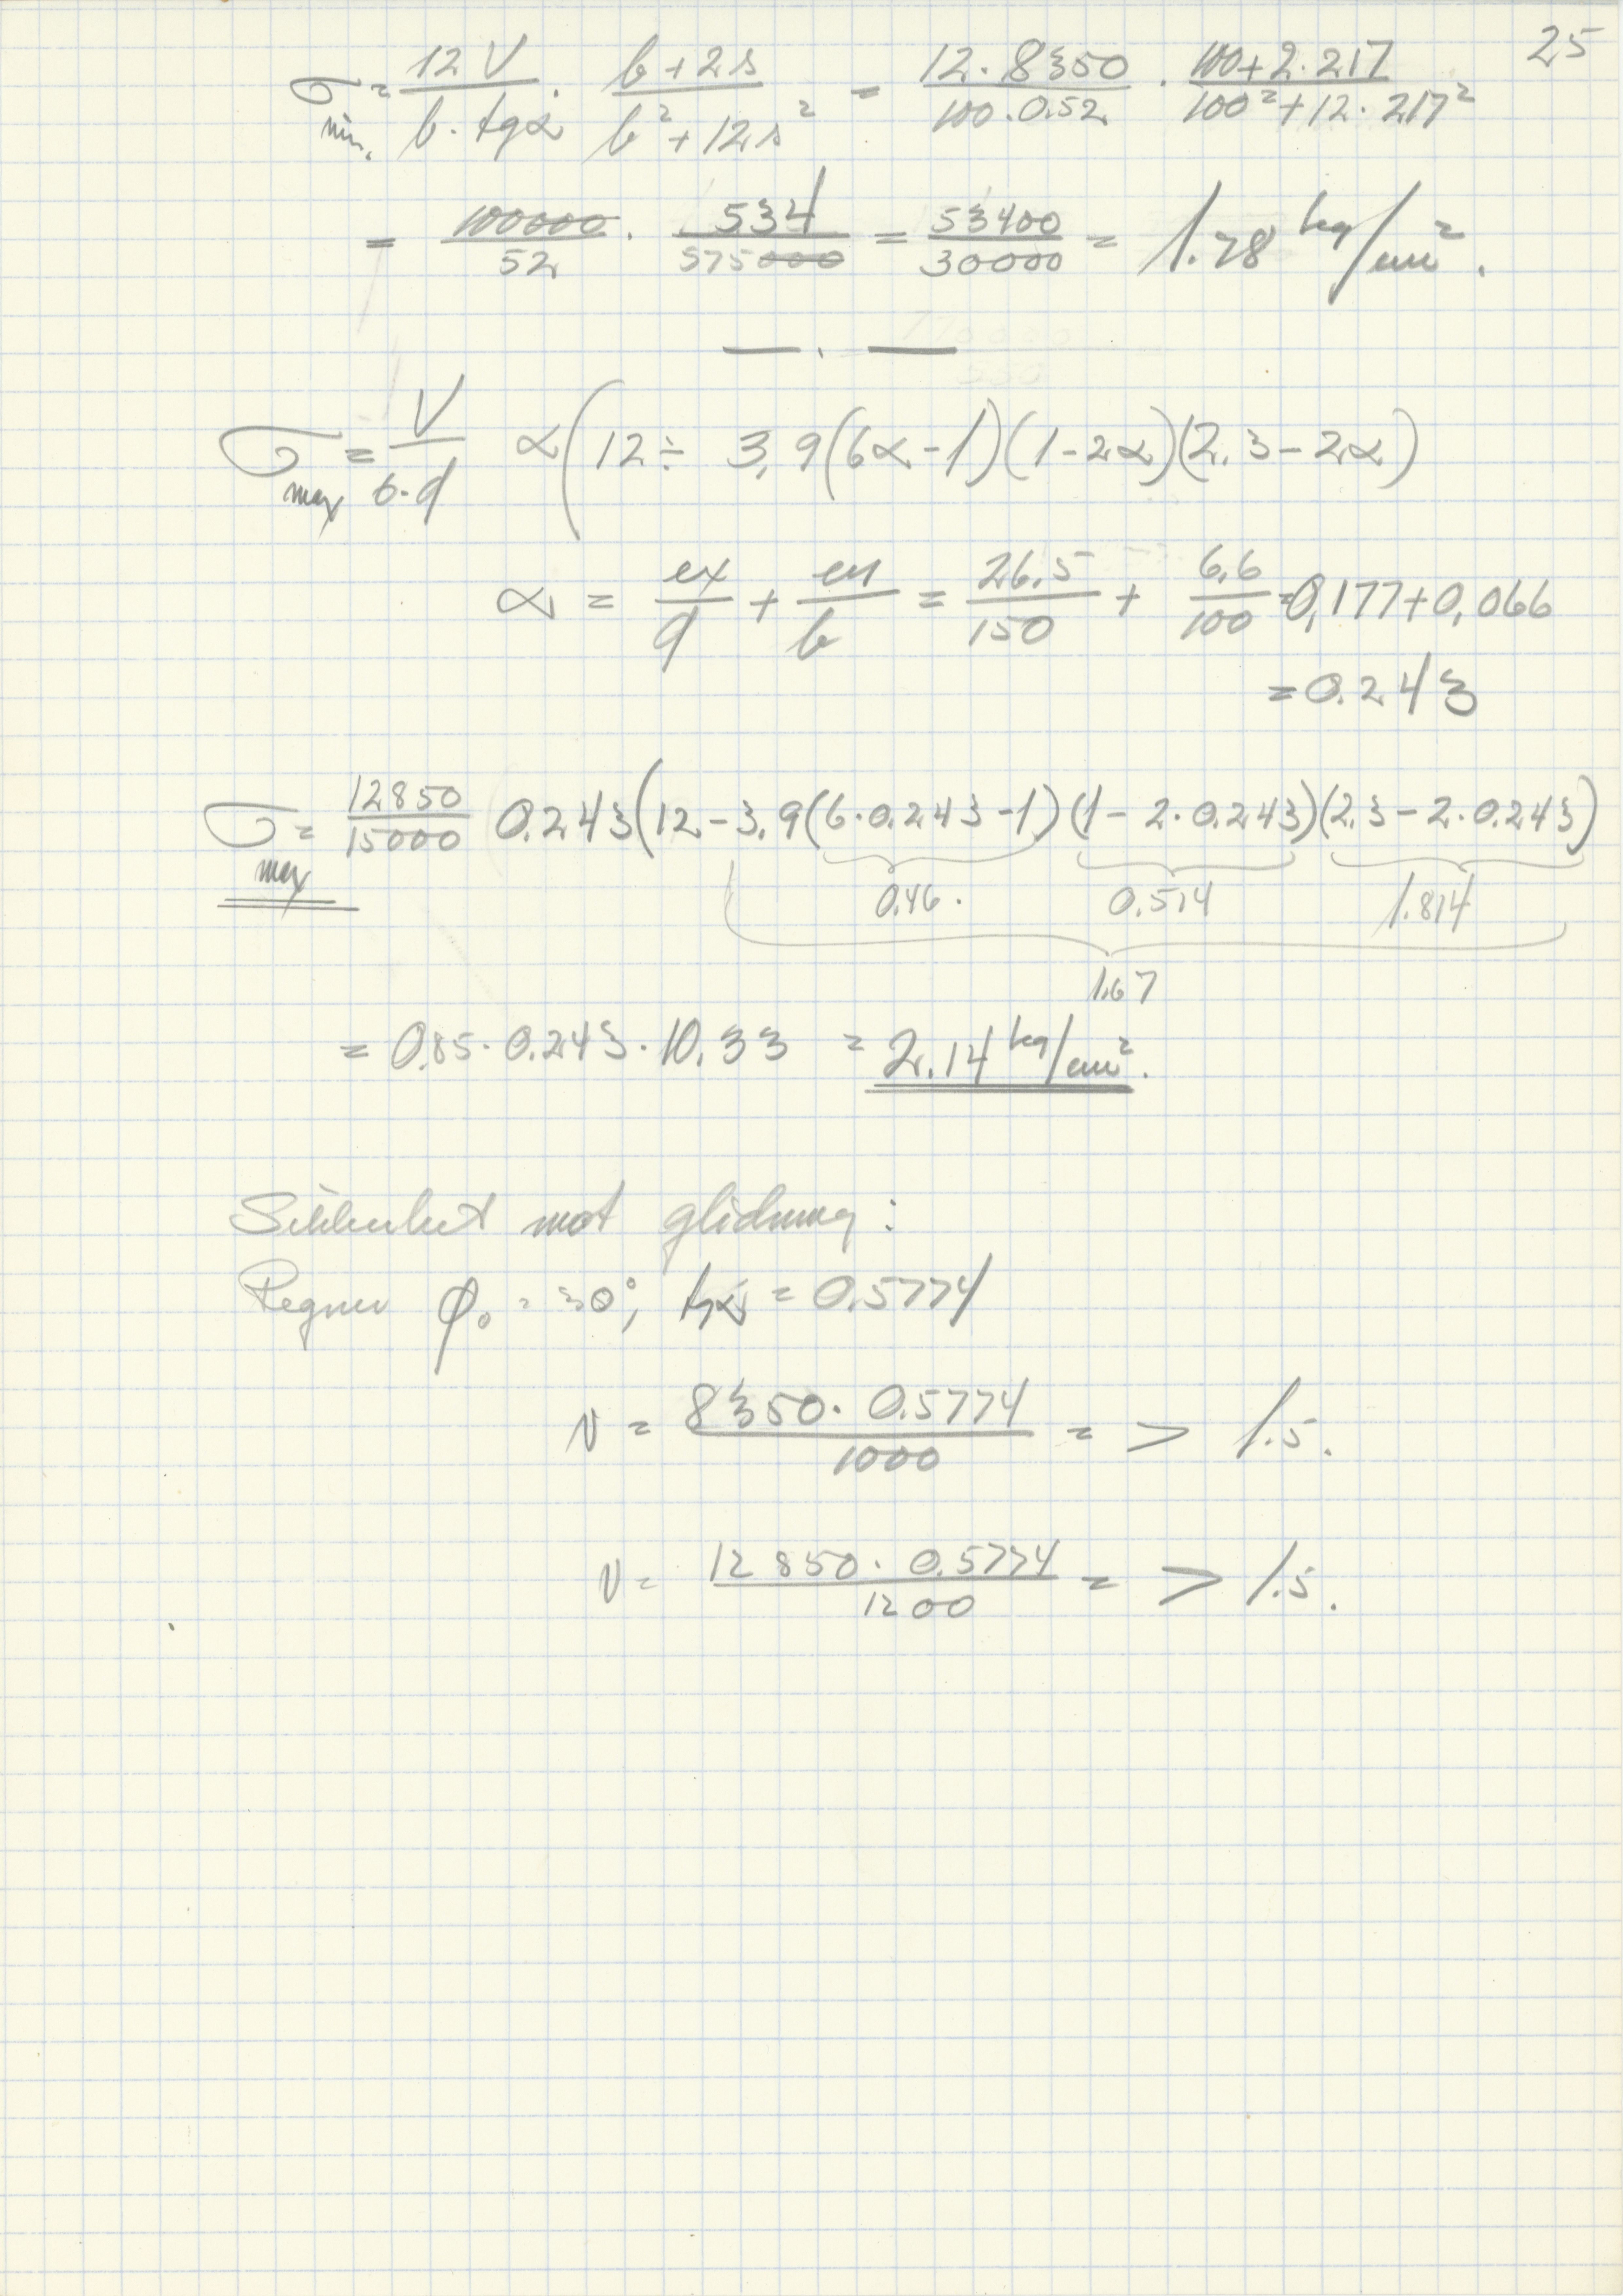 25
σ min. = 12 V / b · tgα · b + 2s / b² + 12s² = 12 · 8350 / 100 · 0.52 · 100 + 2 · 217 / 100² + 12 · 217²
= 100000 / 52 · 534 / 575000 = 53400 / 30000 = 1.78 kg/cm².
— . —
σ max = V / b·d α(12 ÷ 3,9(6α-1)(1-2α)(2,3-2α)
α = ex / d + en / b = 26.5 / 150 + 6.6 / 100 = 0,177+0,066
= 0.243
σ max = 12850 / 15000 0.243(12-3,9(6·0.243-1)(1-2·0.243)(2.3-2·0.243)
0.46. 0.514 1.814
1.67
= 0.85 · 0.243 · 10.33 = 2.14 kg/cm².
Sikkerhet mot glidning:
Regner φ₀ = 30°; tgα = 0.5774
N = 8350 · 0.5774 / 1000 = > 1.5.
N = 12850 · 0.5774 / 1200 = > 1.5.